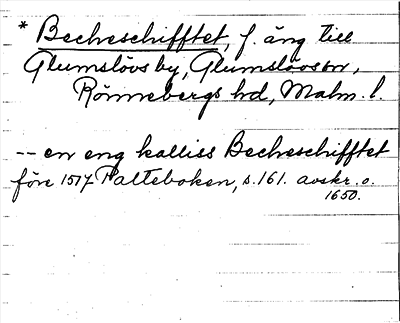 * Becheschifftet, f. äng till
Glumslövs by, Glumslövs sn,
Rönnebergs hd, Malm. l.
-- en eng kalliss Becheschifftet
före 1517 Palteboken, s. 161. avskr. o.
1650.